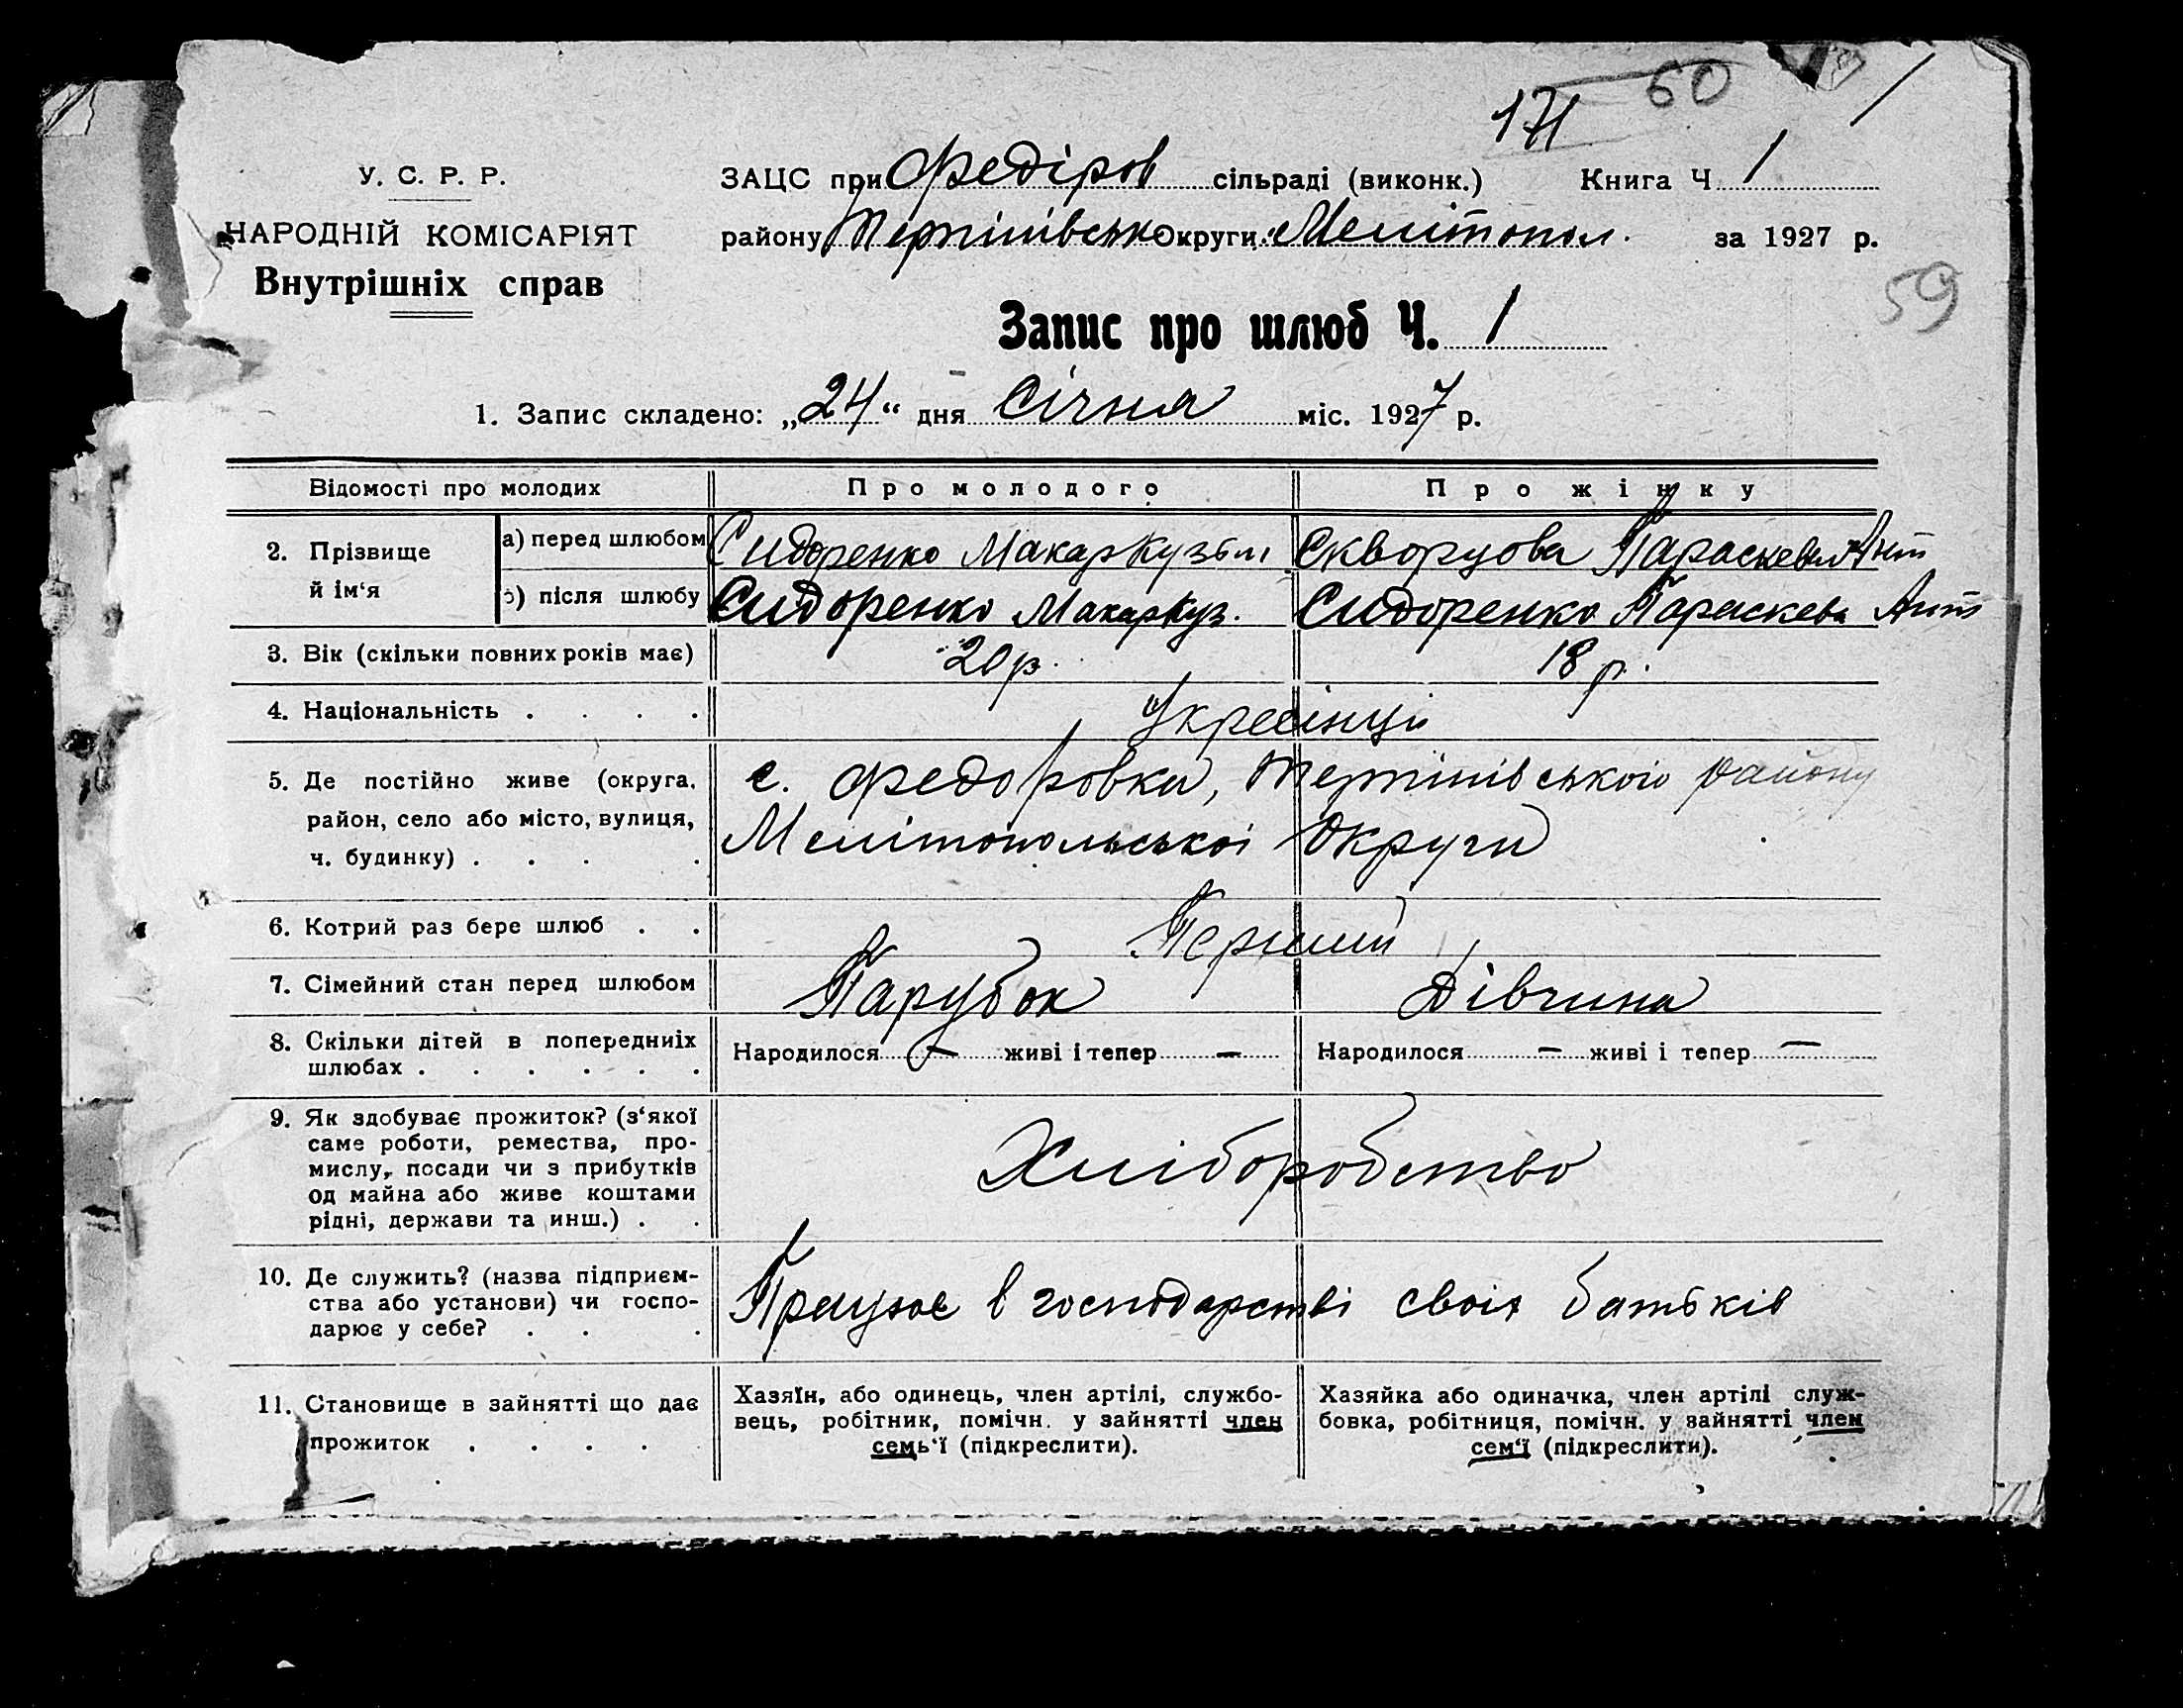 171 60
У. С. Р. Р.
НАРОДНІЙ КОМІСАРІЯТ
Внутрішніх справ
ЗАЦС при Федіров сільраді (виконк.) Книга Ч 1
району Терпінівськ округи Мелітопол. за 1927 р.
59
Запис про шлюб Ч. 1
1. Запис складено: „24“ дня Січня міс. 1927 р.
Відомості про молодих Про молодого Про жінку
2. Прізвище й ім‘я
а) перед шлюбом Сидоренко Макар Кузьм Скворцова Параскева Ант
б) після шлюбу Сидоренко Макар Куз. Сидоренко Параскева Ант
3. Вік (скільки повних років має) 20 р. 18 р.
4. Національність . . . . Українці
5. Де постійно живе (округа, с. Федоровка, Терпінівського району
район, село або місто, вулиця, Мелітопольської Округи
ч. будинку) . . . .
6. Котрий раз бере шлюб . . Перший
7. Сімейний стан перед шлюбом Парубок Дівчина
8. Скільки дітей в попередниіх Народилося — живі і тепер — Народилося — живі і тепер —
шлюбах . . . . . .
9. Як здобуває прожиток? (з‘якої
саме роботи, ремества, про-
мислу, посади чи з прибутків Хліборобство
од майна або живе коштами
рідні, держави та инш.) . .
10. Де служить? (назва підприєм-
ства або установи) чи госпо- Працює в господарстві своіх батьків
дарює у себе? . . .
11. Становище в зайнятті що дає
прожиток . . . .
Хазяїн, або одинець, член артілі, службо-
вець, робітник, помічн. у зайнятті член
семь‘ї (підкреслити).
Хазяйка або одиначка, член артілі служ-
бовка, робітниця, помічн. у зайнятті член
сем‘ї (підкреслити).